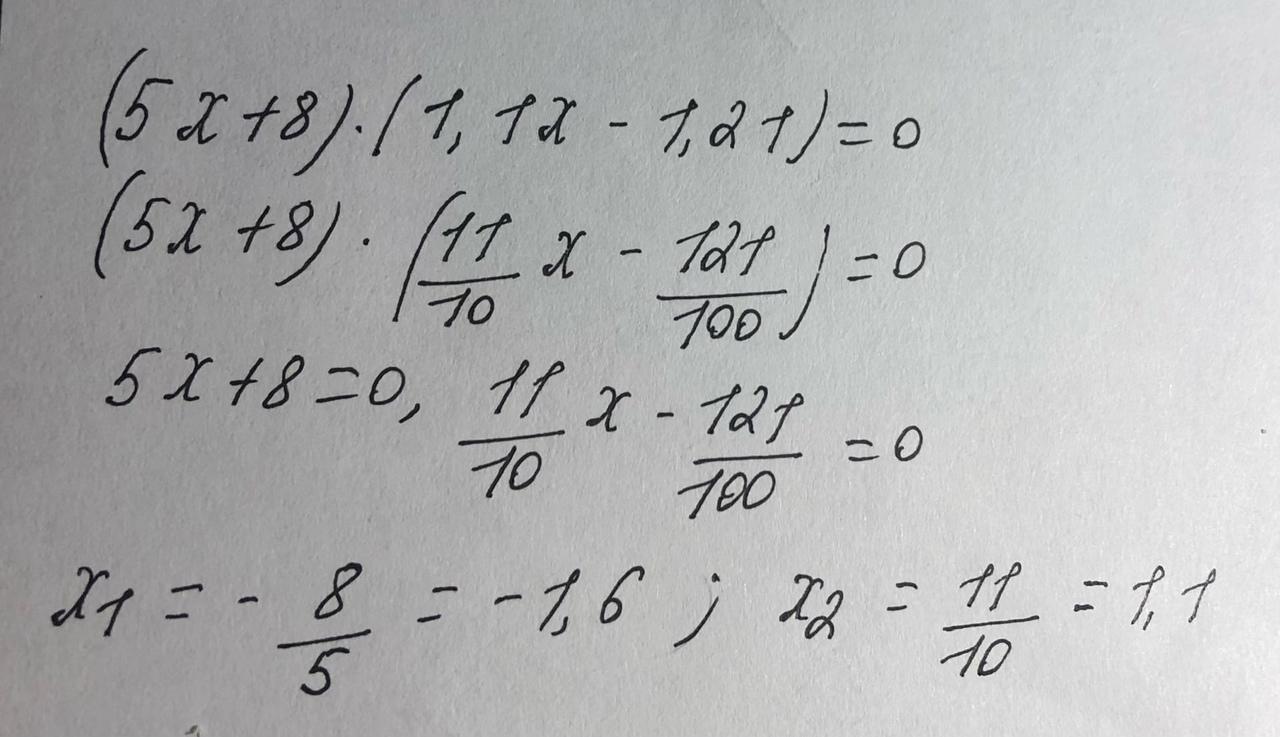 (5x+8)·(1,1x - 1,21)=0
(5x+8)·(11/10 x - 121/100)=0
5x+8=0, 11/10 x - 121/100 =0
x₁ = - 8/5 = -1,6 ; x₂ = 11/10 = 1,1